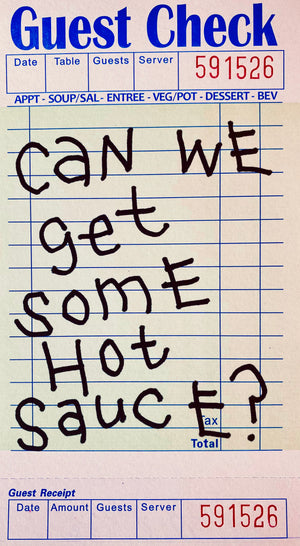 Guest Check
Date Table Guests Server 591526
APPT - SOUP/SAL - ENTREE - VEG/POT - DESSERT - BEV
CAN WE
get
somE
Hot
saucE?
Tax
Total
Guest Receipt
Date Amount Guests Server 591526